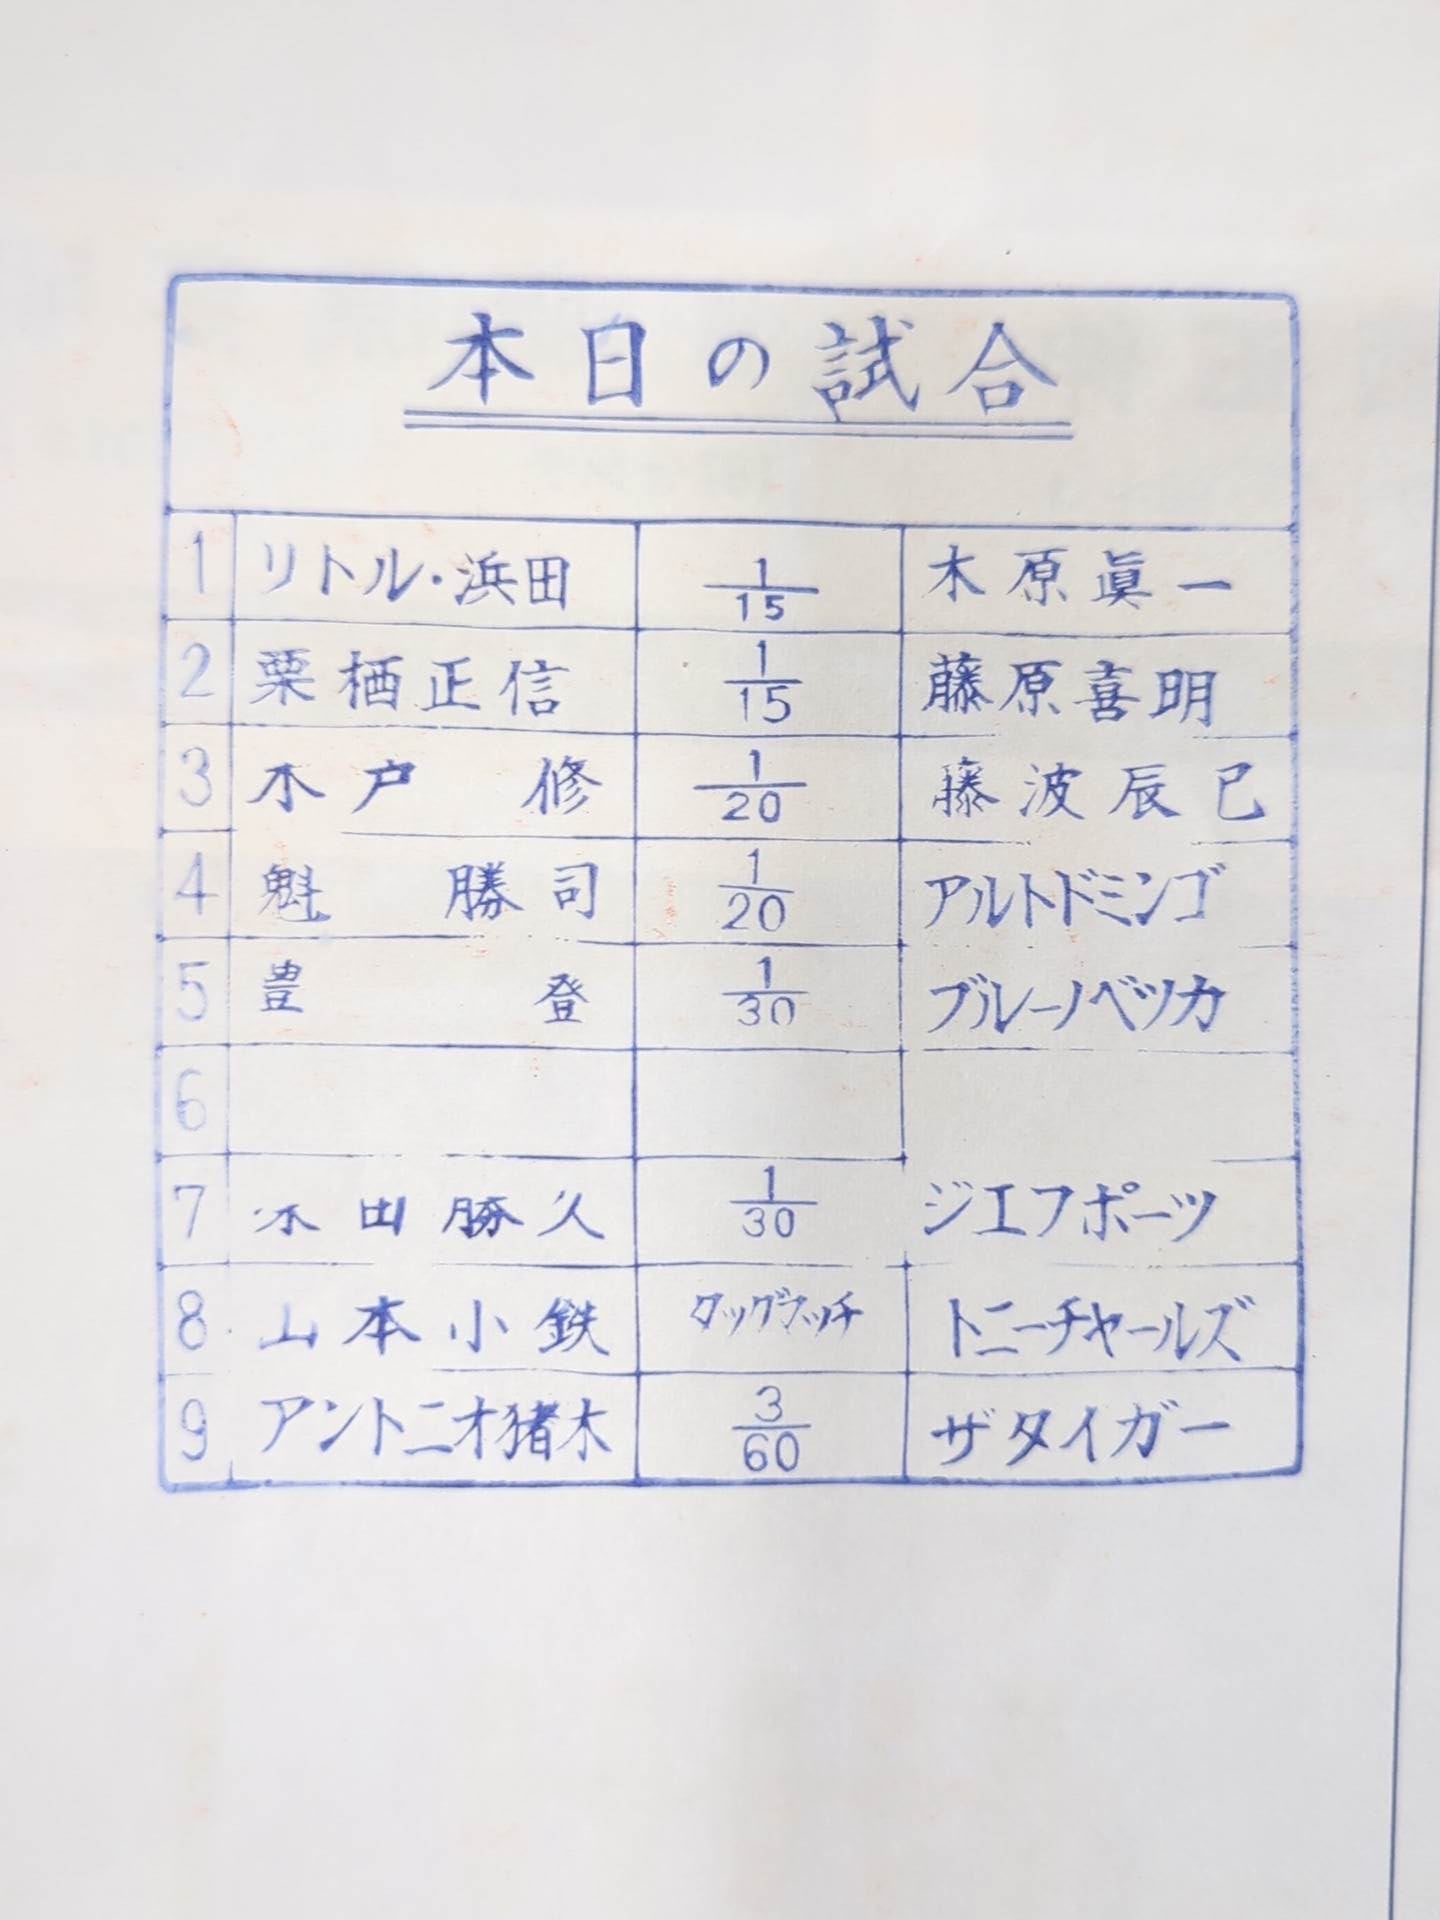 本日の試合
1 リトル・浜田 1/15 木原眞一
2 栗栖正信 1/15 藤原喜明
3 木戸 修 1/20 藤波辰巳
4 魁 勝司 1/20 アルトドミンゴ
5 豊 登 1/30 ブルーノベツカ
6
7 木田勝久 1/30 ジエフポーツ
8 山本小鉄 タッグマッチ トニーチャールズ
9 アントニオ猪木 3/60 ザタイガー